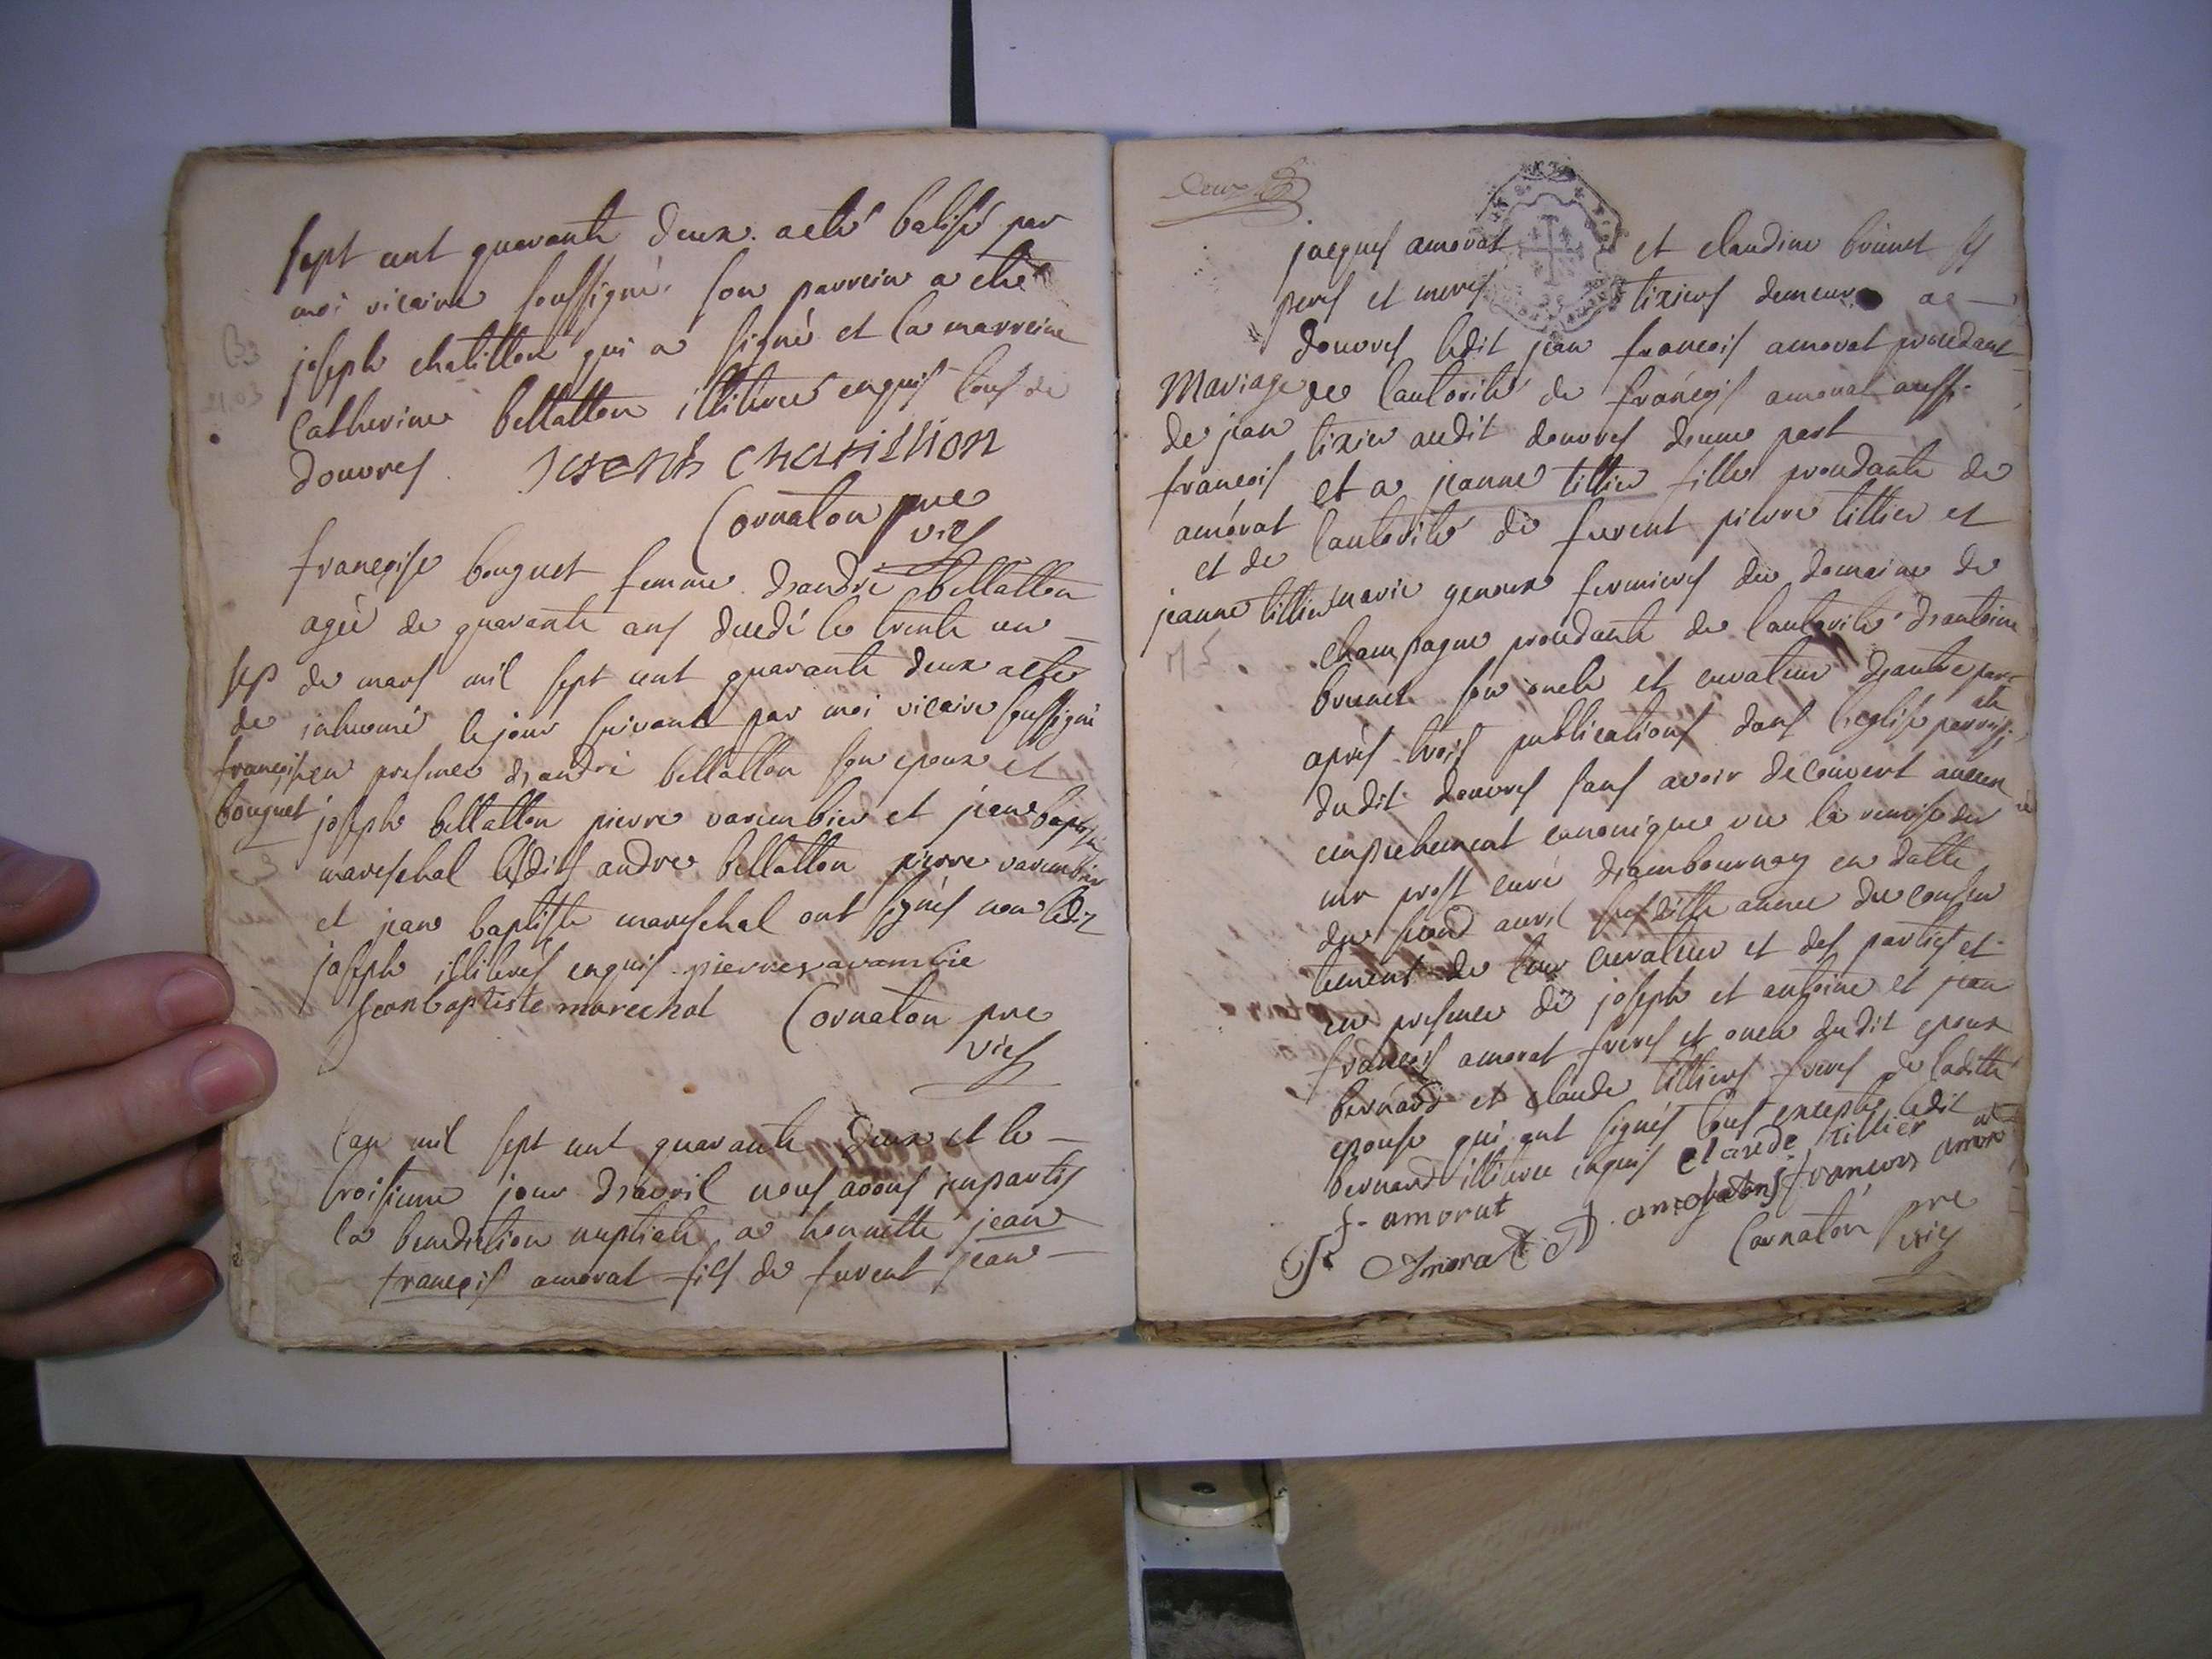 sept cent quarante deux a eté batisé par
moi vicaire soussigné son parrein a eté
joseph chatillon qui a signé et la marreine
Catherine bellatton illiteree enquis tous de
douvres Joseph Chatillion
Cornaton pre
vics
françoise bouguet femme d'andré bellatton
ageé de quarante ans decedé le trente un
sep de mars mil sept cent quarante deux a eté
de inhumé le jour suivant par moi vicaire soussigné
françoise en presence d'andré bellatton son epoux et
bouguet joseph bellatton pierre varembier et jean baptiste
mareschal lesdits andre bellatton pierre varembier
et jean baptiste mareschal ont signés non ledit
joseph illiterés enquis pierre varambie
Jean baptiste marechal Cornaton pre
vics
lan mil sept cent quarante deux et le
troisieme jour d'avril nous avons impartis
la benediction nuptiale a honnette jean
françois amorat fils de furent jean
deux
jacques amorat et claudine brunet ses
peres et meres tixiers demeure a
douvres ledit jean francois amorat procedant
Mariage de lautorité de françois amorat aussi
de jean tixier audit douvres d'une part
francois et a jeanne tillier fille procedante de
amorat lautorité de furent pierre tillier et
et de marie genoux fermiers du domaine de
jeanne tillier champagne procedante de lautorité d'antoine
brunet son oncle et curateur d'autre part
après trois publications dans l'eglise parroissialle
dudit douvres sans avoir decouvert aucun
empechement canonique vu la remise de
mr prost curé d'ambournay en datte
du second avril susditte année du consen
tement de leur curateur et des parties et
en presence de joseph et antoine et jean
françois amorat freres et oncle dudit epoux
bernard et claude tilliers freres de laditte
epouse qui ont signés tous excepte ledit
bernard illiteree enquis Claude tillier
f. amorat A. amorat francois amorat
Amorat Cornaton pre
vics